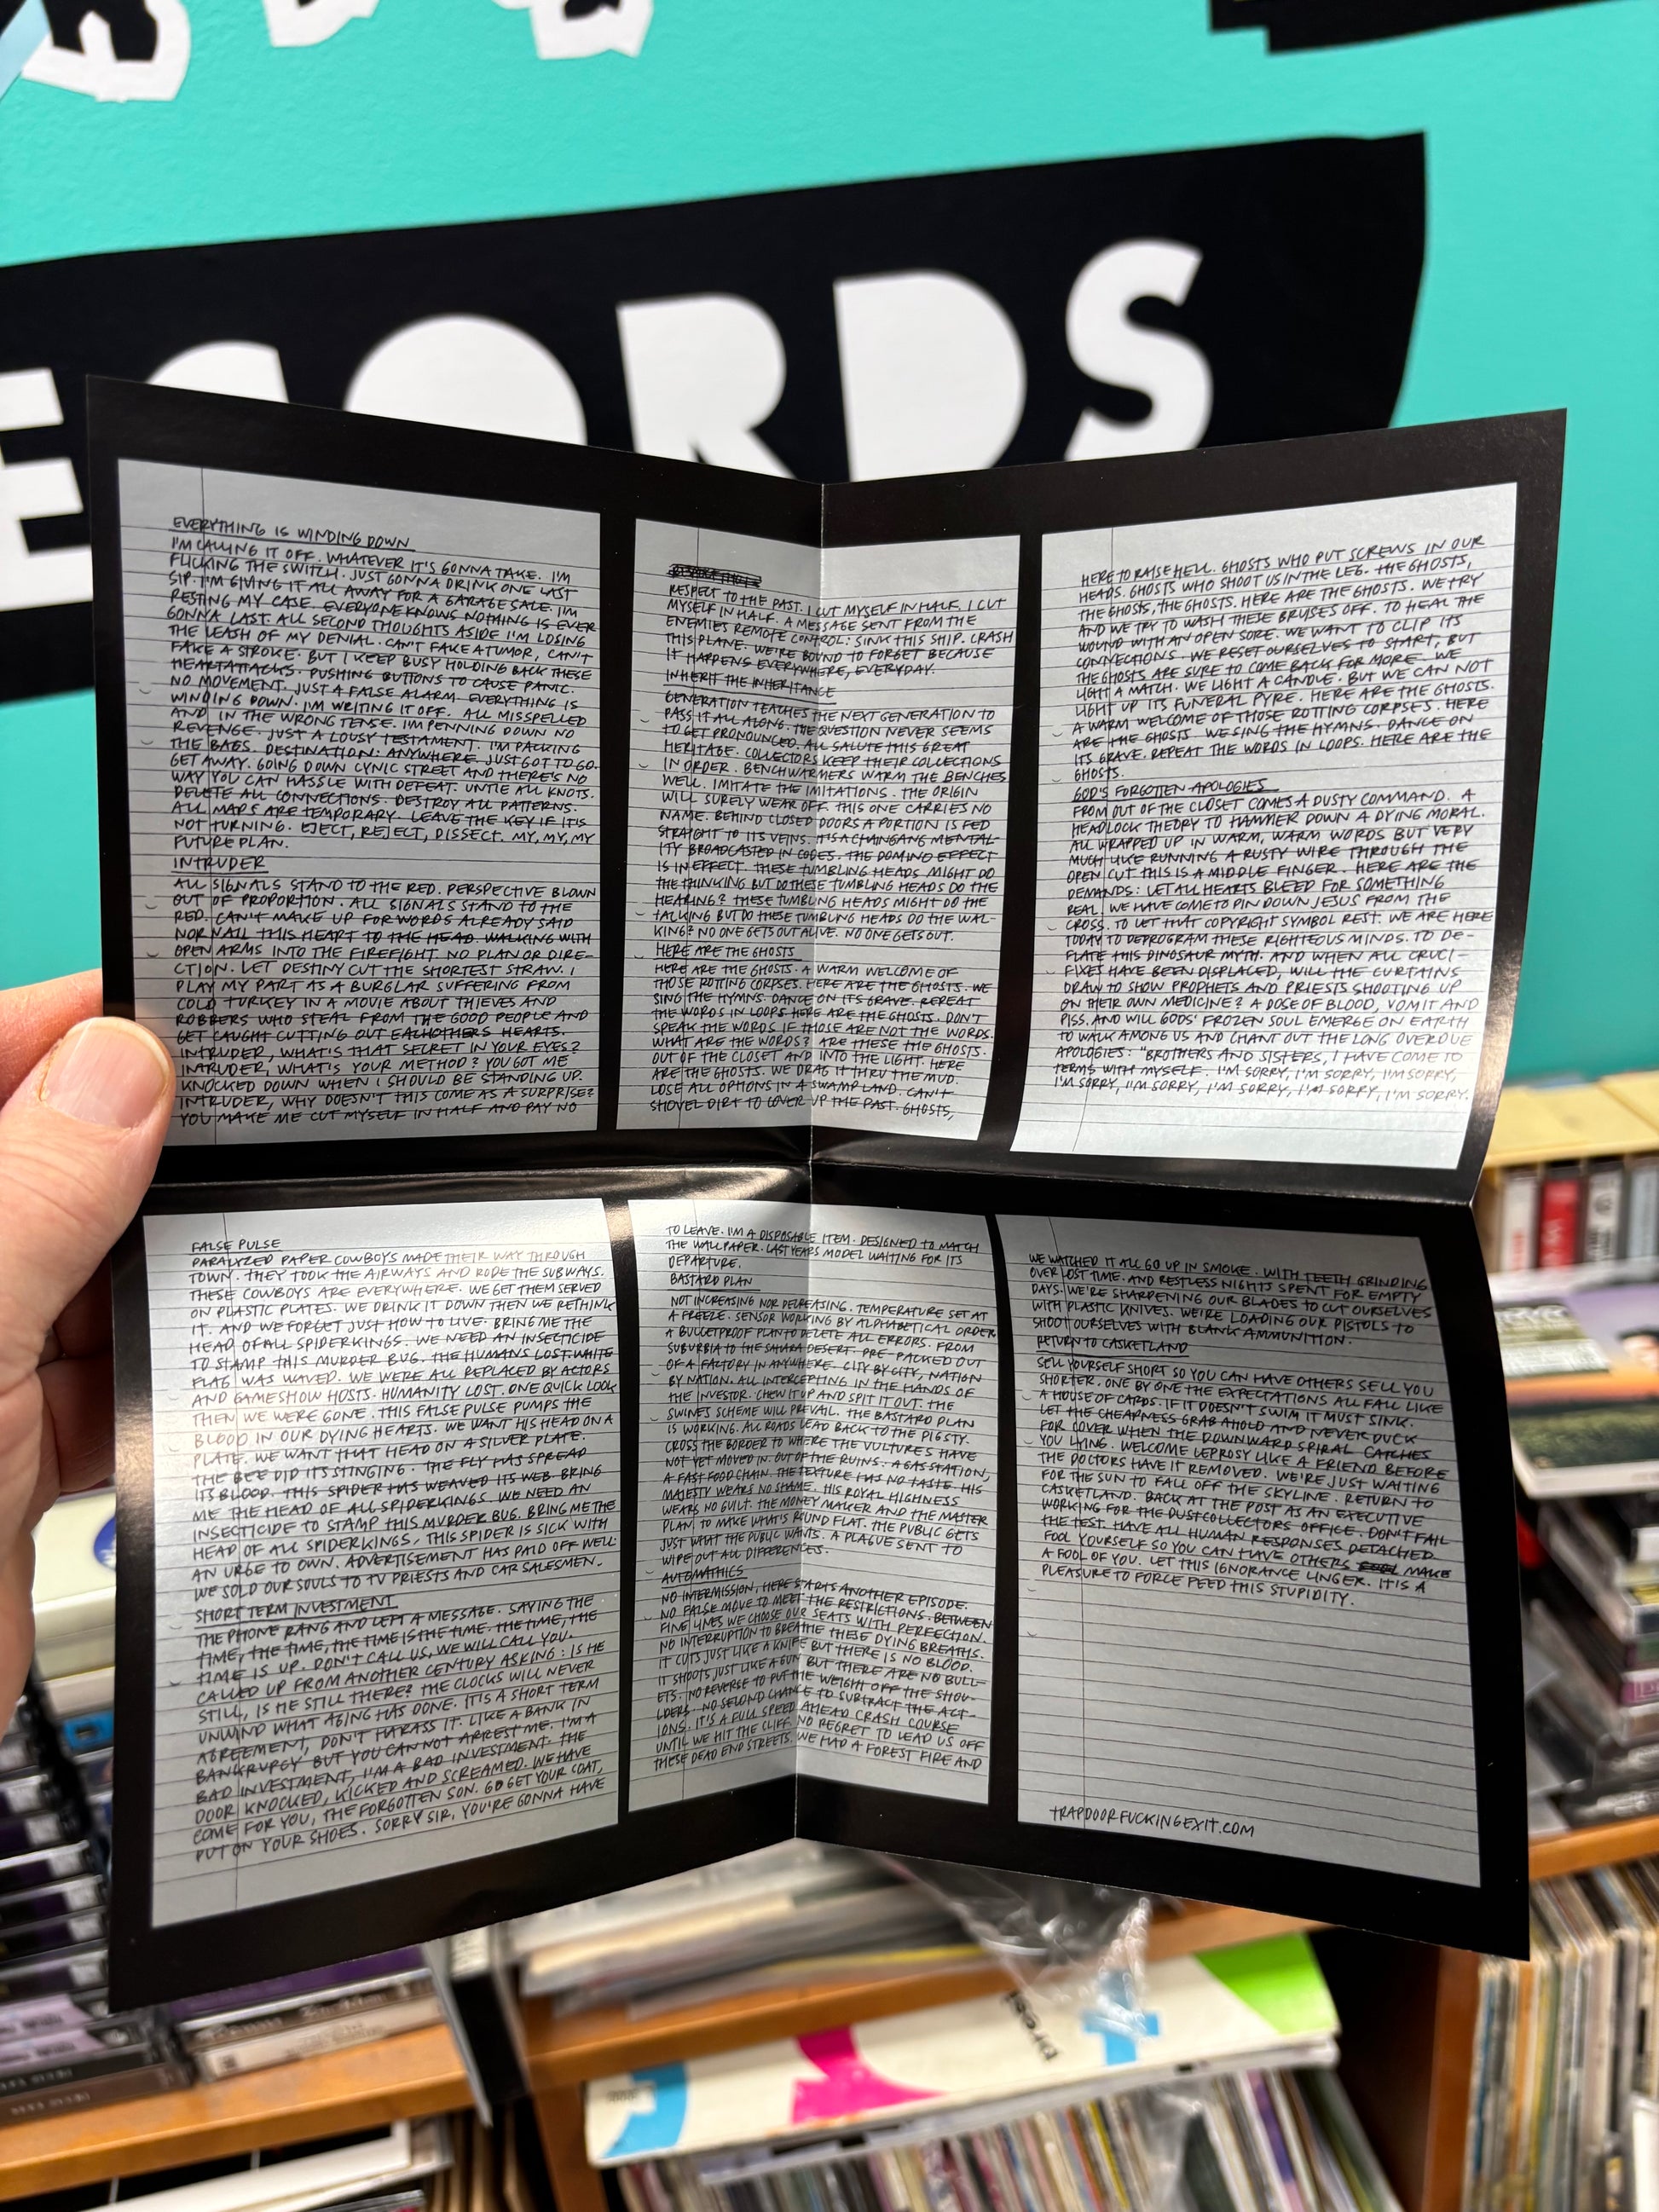 ECORDS
EVERYTHING IS WINDING DOWN
I'M CALLING IT OFF. WHATEVER IT'S GONNA TAKE. I'M
FLICKING THE SWITCH. JUST GONNA DRINK ONE LAST
SIP. I'M GIVING IT ALL AWAY FOR A GARAGE SALE. I'M
RESTING MY CASE. EVERYONE KNOWS NOTHING IS EVER
GONNA LAST. ALL SECOND THOUGHTS ASIDE I'M LOSING
THE LEASH OF MY DENIAL. CAN'T FAKE A TUMOR, CAN'T
FAKE A STROKE. BUT I KEEP BUSY HOLDING BACK THESE
HEARTATTACKS. PUSHING BUTTONS TO CAUSE PANIC.
NO MOVEMENT. JUST A FALSE ALARM. EVERYTHING IS
WINDING DOWN. I'M WRITING IT OFF. ALL MISSPELLED
AND IN THE WRONG TENSE. I'M PENNING DOWN NO
REVENGE. JUST A LOUSY TESTAMENT. I'M PACKING
THE BAGS. DESTINATION: ANYWHERE. JUST GOT TO GO.
GET AWAY. GOING DOWN CYNIC STREET AND THERE'S NO
WAY YOU CAN HASSLE WITH DEFEAT. UNTIE ALL KNOTS.
DELETE ALL CONNECTIONS. DESTROY ALL PATTERNS.
ALL MAPS ARE TEMPORARY. LEAVE THE KEY IF IT'S
NOT TURNING. EJECT, REJECT, DISSECT. MY, MY, MY
FUTURE PLAN.
INTRUDER
ALL SIGNALS STAND TO THE RED. PERSPECTIVE BLOWN
OUT OF PROPORTION. ALL SIGNALS STAND TO THE
RED. CAN'T MAKE UP FOR WORDS ALREADY SAID
NOR NAIL THIS HEART TO THE HEAD. WALKING WITH
OPEN ARMS INTO THE FIREFIGHT. NO PLAN OR DIRE-
CTION. LET DESTINY CUT THE SHORTEST STRAW. I
PLAY MY PART AS A BURGLAR SUFFERING FROM
COLD TURKEY IN A MOVIE ABOUT THIEVES AND
ROBBERS WHO STEAL FROM THE GOOD PEOPLE AND
GET CAUGHT CUTTING OUT EACHOTHERS HEARTS.
INTRUDER, WHAT'S THAT SECRET IN YOUR EYES?
INTRUDER, WHAT'S YOUR METHOD? YOU GOT ME
KNOCKED DOWN WHEN I SHOULD BE STANDING UP.
INTRUDER, WHY DOESN'T THIS COME AS A SURPRISE?
YOU MAKE ME CUT MYSELF IN HALF AND PAY NO
RESPECT TO THE PAST. I CUT MYSELF IN HALF. I CUT
MYSELF IN HALF. A MESSAGE SENT FROM THE
ENEMIES REMOTE CONTROL: SINK THIS SHIP. CRASH
THIS PLANE. WE'RE BOUND TO FORGET BECAUSE
IT HAPPENS EVERYWHERE, EVERYDAY.
INHERIT THE INHERITANCE
GENERATION TEACHES THE NEXT GENERATION TO
PASS IT ALL ALONG. THE QUESTION NEVER SEEMS
TO GET PRONOUNCED. ALL SALUTE THIS GREAT
HERITAGE. COLLECTORS KEEP THEIR COLLECTIONS
IN ORDER. BENCHWARMERS WARM THE BENCHES
WELL. IMITATE THE IMITATIONS. THE ORIGIN
WILL SURELY WEAR OFF. THIS ONE CARRIES NO
NAME. BEHIND CLOSED DOORS A PORTION IS FED
STRAIGHT TO ITS VEINS. IT'S A CHAINGANG MENTAL-
ITY BROADCASTED IN CODES. THE DOMINO EFFECT
IS IN EFFECT. THESE TUMBLING HEADS MIGHT DO
THE THINKING BUT DO THESE TUMBLING HEADS DO THE
HEARING? THESE TUMBLING HEADS MIGHT DO THE
TALKING BUT DO THESE TUMBLING HEADS DO THE WAL-
KING? NO ONE GETS OUT ALIVE. NO ONE GETS OUT.
HERE ARE THE GHOSTS
HERE ARE THE GHOSTS. A WARM WELCOME OF
THOSE ROTTING CORPSES. HERE ARE THE GHOSTS. WE
SING THE HYMNS. DANCE ON ITS GRAVE. REPEAT
THE WORDS IN LOOPS. HERE ARE THE GHOSTS. DON'T
SPEAK THE WORDS IF THOSE ARE NOT THE WORDS.
WHAT ARE THE WORDS? ARE THESE THE GHOSTS.
OUT OF THE CLOSET AND INTO THE LIGHT. HERE
ARE THE GHOSTS. WE DRAG IT THRU THE MUD.
LOSE ALL OPTIONS IN A SWAMP LAND. CAN'T
SHOVEL DIRT TO COVER UP THE PAST. GHOSTS,
HERE TO RAISE HELL. GHOSTS WHO PUT SCREWS IN OUR
HEADS. GHOSTS WHO SHOOT US IN THE LEG. THE GHOSTS,
THE GHOSTS, THE GHOSTS. HERE ARE THE GHOSTS. WE TRY
AND WE TRY TO WASH THESE BRUISES OFF. TO HEAL THE
WOUND WITH AN OPEN SORE. WE WANT TO CLIP ITS
CONNECTIONS. WE RESET OURSELVES TO START, BUT
THE GHOSTS ARE SURE TO COME BACK FOR MORE. WE
LIGHT A MATCH. WE LIGHT A CANDLE. BUT WE CAN NOT
LIGHT UP ITS FUNERAL PYRE. HERE ARE THE GHOSTS.
A WARM WELCOME OF THOSE ROTTING CORPSES. HERE
ARE THE GHOSTS. WE SING THE HYMNS. DANCE ON
ITS GRAVE. REPEAT THE WORDS IN LOOPS. HERE ARE THE
GHOSTS.
GOD'S FORGOTTEN APOLOGIES
FROM OUT OF THE CLOSET COMES A DUSTY COMMAND. A
HEADLOCK THEORY TO HAMMER DOWN A DYING MORAL.
ALL WRAPPED UP IN WARM, WARM WORDS BUT VERY
MUCH LIKE RUNNING A RUSTY WIRE THROUGH THE
OPEN CUT THIS IS A MIDDLE FINGER. HERE ARE THE
DEMANDS: LET ALL HEARTS BLEED FOR SOMETHING
REAL. WE HAVE COME TO PIN DOWN JESUS FROM THE
CROSS. TO LET THAT COPYRIGHT SYMBOL REST. WE ARE HERE
TODAY TO DEPROGRAM THESE RIGHTEOUS MINDS. TO DE-
FLATE THIS DINOSAUR MYTH. AND WHEN ALL CRUCI-
FIXES HAVE BEEN DISPLACED, WILL THE CURTAINS
DRAW TO SHOW PROPHETS AND PRIESTS SHOOTING UP
ON THEIR OWN MEDICINE? A DOSE OF BLOOD, VOMIT AND
PISS. AND WILL GODS' FROZEN SOUL EMERGE ON EARTH
TO WALK AMONG US AND CHANT OUT THE LONG OVERDUE
APOLOGIES: "BROTHERS AND SISTERS, I HAVE COME TO
TERMS WITH MYSELF. I'M SORRY, I'M SORRY, I'M SORRY,
I'M SORRY, I'M SORRY, I'M SORRY, I'M SORRY, I'M SORRY.
FALSE PULSE
PARALYZED PAPER COWBOYS MADE THEIR WAY THROUGH
TOWN. THEY TOOK THE AIRWAYS AND RODE THE SUBWAYS.
THESE COWBOYS ARE EVERYWHERE. WE GET THEM SERVED
ON PLASTIC PLATES. WE DRINK IT DOWN THEN WE RETHINK
IT. AND WE FORGET JUST HOW TO LIVE. BRING ME THE
HEAD OF ALL SPIDERKINGS. WE NEED AN INSECTICIDE
TO STAMP THIS MURDER BUG. THE HUMANS LOST. WHITE
FLAG WAS WAVED. WE WERE ALL REPLACED BY ACTORS
AND GAMESHOW HOSTS. HUMANITY LOST. ONE QUICK LOOK
THEN WE WERE GONE. THIS FALSE PULSE PUMPS THE
BLOOD IN OUR DYING HEARTS. WE WANT HIS HEAD ON A
PLATE. WE WANT THAT HEAD ON A SILVER PLATE.
THE BEE DID ITS STINGING. THE FLY HAS SPREAD
ITS BLOOD. THIS SPIDER HAS WEAVED ITS WEB. BRING
ME THE HEAD OF ALL SPIDERKINGS. WE NEED AN
INSECTICIDE TO STAMP THIS MURDER BUG. BRING ME THE
HEAD OF ALL SPIDERKINGS. THIS SPIDER IS SICK WITH
AN URGE TO OWN. ADVERTISEMENT HAS PAID OFF WELL.
WE SOLD OUR SOULS TO TV PRIESTS AND CAR SALESMEN.
SHORT TERM INVESTMENT
THE PHONE RANG AND LEFT A MESSAGE. SAYING THE
TIME, THE TIME, THE TIME IS THE TIME. THE TIME, THE
TIME IS UP. DON'T CALL US, WE WILL CALL YOU.
CALLED UP FROM ANOTHER CENTURY ASKING: IS HE
STILL, IS HE STILL THERE? THE CLOCKS WILL NEVER
UNWIND WHAT AGING HAS DONE. IT IS A SHORT TERM
AGREEMENT, DON'T HARASS IT. LIKE A BANK IN
BANKRUPCY BUT YOU CAN NOT ARREST ME. I'M A
BAD INVESTMENT, I'M A BAD INVESTMENT. THE
DOOR KNOCKED, KICKED AND SCREAMED. WE HAVE
COME FOR YOU, THE FORGOTTEN SON. GO GET YOUR COAT,
PUT ON YOUR SHOES. SORRY SIR, YOU'RE GONNA HAVE
TO LEAVE. I'M A DISPOSABLE ITEM. DESIGNED TO MATCH
THE WALLPAPER. LAST YEARS MODEL WAITING FOR ITS
DEPARTURE.
BASTARD PLAN
NOT INCREASING NOR DECREASING. TEMPERATURE SET AT
A FREEZE. SENSOR WORKING BY ALPHABETICAL ORDER.
A BULLETPROOF PLAN TO DELETE ALL ERRORS. FROM
SUBURBIA TO THE SAHARA DESERT. PRE-PACKED OUT
OF A FACTORY IN ANYWHERE. CITY BY CITY, NATION
BY NATION. ALL INTERCEPTING IN THE HANDS OF
THE INVESTOR. CHEW IT UP AND SPIT IT OUT. THE
SWINES SCHEME WILL PREVAIL. THE BASTARD PLAN
IS WORKING. ALL ROADS LEAD BACK TO THE PIGSTY.
CROSS THE BORDER TO WHERE THE VULTURES HAVE
NOT YET MOVED IN. OUT OF THE RUINS.. A GAS STATION,
A FAST FOOD CHAIN. THE TEXTURE HAS NO TASTE. HIS
MAJESTY WEARS NO SHAME. HIS ROYAL HIGHNESS
WEARS NO GUILT. THE MONEY MAKER AND THE MASTER
PLAN TO MAKE WHAT'S ROUND FLAT. THE PUBLIC GETS
JUST WHAT THE PUBLIC WANTS. A PLAGUE SENT TO
WIPE OUT ALL DIFFERENCES.
AUTOMATHICS
NO INTERMISSION, HERE STARTS ANOTHER EPISODE.
NO FALSE MOVE TO MEET THE RESTRICTIONS. BETWEEN
FINE LINES WE CHOOSE OUR SEATS WITH PERFECTION.
NO INTERRUPTION TO BREATHE THESE DYING BREATHS.
IT CUTS JUST LIKE A KNIFE BUT THERE IS NO BLOOD.
IT SHOOTS JUST LIKE A GUN BUT THERE ARE NO BULL-
ETS. NO REVERSE TO PUT THE WEIGHT OFF THE SHOU-
LDERS. NO SECOND CHANCE TO SUBTRACT THE ACT-
IONS. IT'S A FULL SPEED AHEAD CRASH COURSE
UNTIL WE HIT THE CLIFF. NO REGRET TO LEAD US OFF
THESE DEAD END STREETS. WE HAD A FOREST FIRE AND
WE WATCHED IT ALL GO UP IN SMOKE. WITH TEETH GRINDING
OVER LOST TIME. AND RESTLESS NIGHTS SPENT FOR EMPTY
DAYS. WE'RE SHARPENING OUR BLADES TO CUT OURSELVES
WITH PLASTIC KNIVES. WE'RE LOADING OUR PISTOLS TO
SHOOT OURSELVES WITH BLANK AMMUNITION.
RETURN TO CASKETLAND
SELL YOURSELF SHORT SO YOU CAN HAVE OTHERS SELL YOU
SHORTER. ONE BY ONE THE EXPECTATIONS ALL FALL LIKE
A HOUSE OF CARDS. IF IT DOESN'T SWIM IT MUST SINK.
LET THE CHEAPNESS GRAB AHOLD AND NEVER DUCK
FOR COVER WHEN THE DOWNWARD SPIRAL CATCHES
YOU LYING. WELCOME LEPROSY LIKE A FRIEND BEFORE
THE DOCTORS HAVE IT REMOVED. WE'RE JUST WAITING
FOR THE SUN TO FALL OFF THE SKYLINE. RETURN TO
CASKETLAND. BACK AT THE POST AS AN EXECUTIVE
WORKING FOR THE DUSTCOLLECTORS OFFICE. DON'T FAIL
THE TEST. HAVE ALL HUMAN RESPONSES DETACHED.
FOOL YOURSELF SO YOU CAN HAVE OTHERS MAKE
A FOOL OF YOU. LET THIS IGNORANCE LINGER. IT IS A
PLEASURE TO FORCE FEED THIS STUPIDITY.
TRAPDOORFUCKINGEXIT.COM